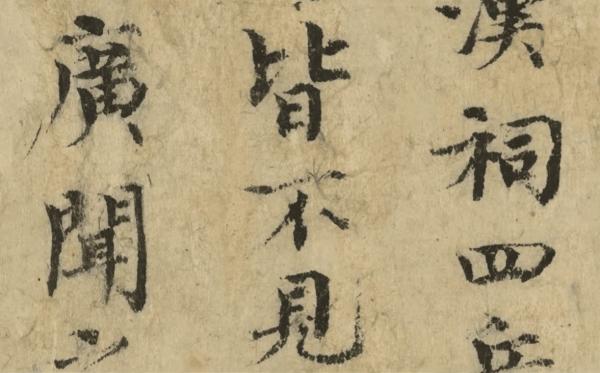 漢祠四兵
皆不見
廣聞之